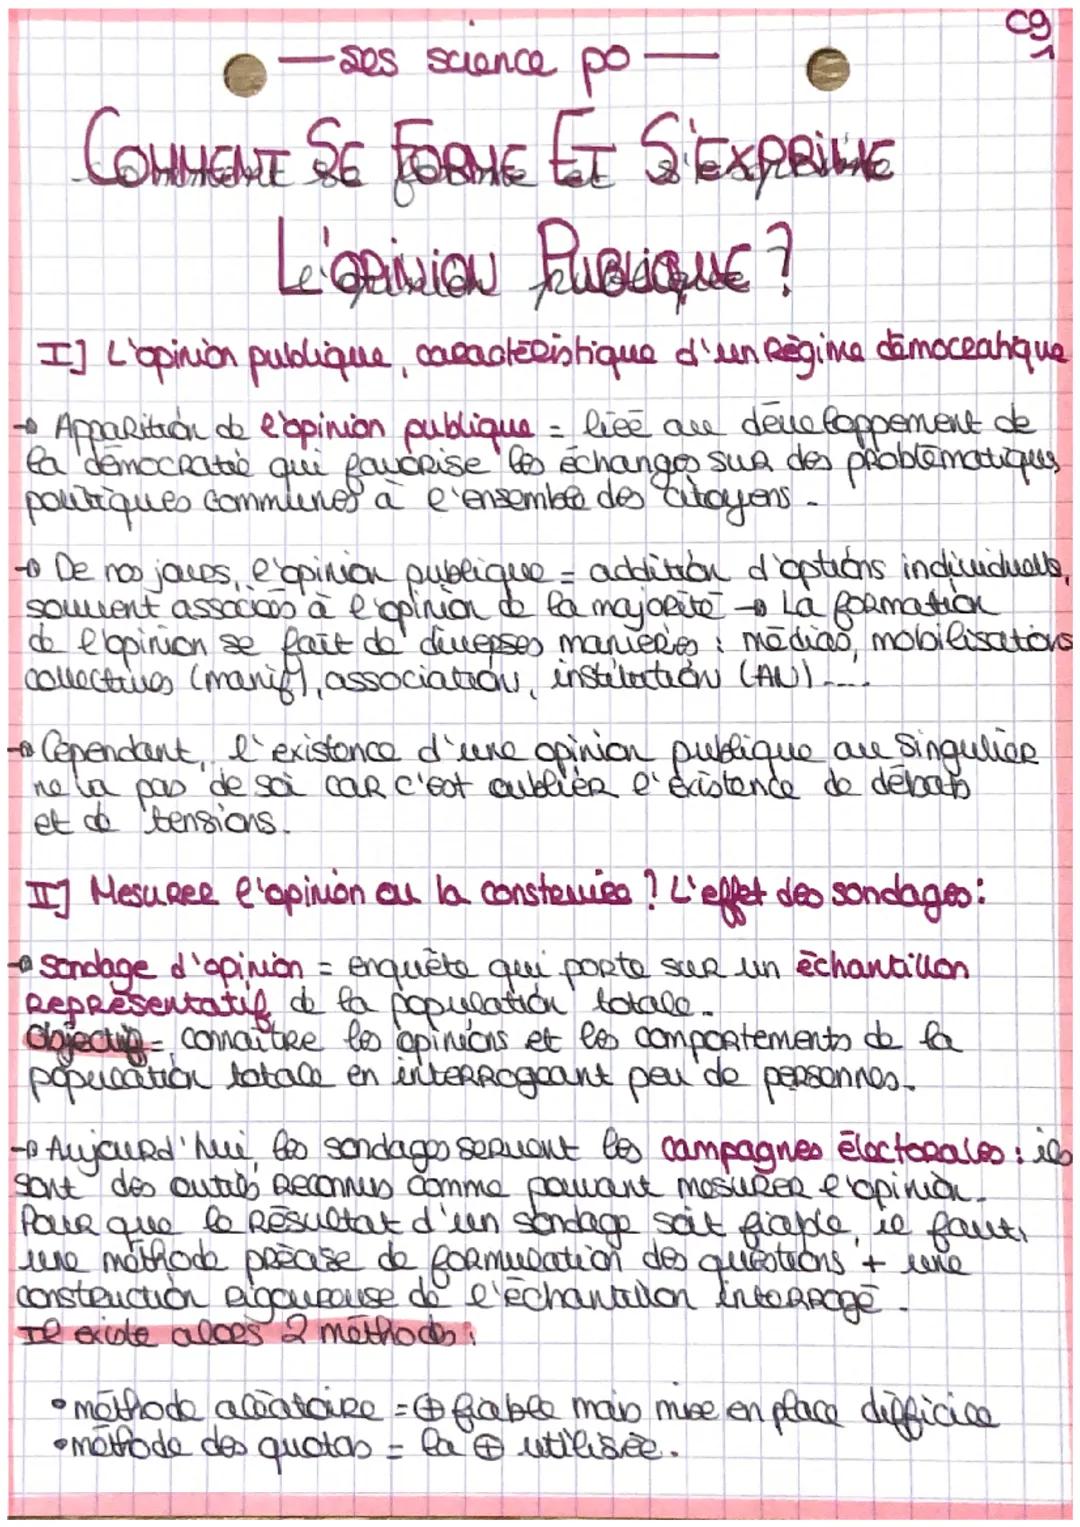 C9,1
— ses science po —
COMMENT SE FORME ET S'EXPRIME
L'OPINION PUBLIQUE ?
I] L'opinion publique, caractéristique d'un Régime démocratique
→ Apparition de l'opinion publique = liée au développement de
la démocratie qui favorise les échanges sur des problématiques
politiques communes à l'ensemble des citoyens.
→ De nos jours, l'opinion publique = addition d'options individuells,
souvent associées à l'opinion de la majorité → La formation
de l'opinion se fait de diverses manières : médias, mobilisations
collectives (manif), association, institution (AN) ....
→ Cependant, l'existence d'une opinion publique au singulier
ne va pas de soi car c'est oublier l'existence de débats
et de tensions.
II] Mesurer l'opinion ou la construire ? L'effet des sondages :
→ Sondage d'opinion = enquête qui porte sur un échantillon
Représentatif de la population totale.
Objectif = connaître les opinions et les comportements de la
population totale en interrogeant peu de personnes.
→ Aujourd'hui, les sondages servent les campagnes électorales : ils
sont des outils reconnus comme pouvant mesurer l'opinion.
Pour que le résultat d'un sondage soit fiable, il faut,
une méthode précise de formulation des questions + une
construction rigoureuse de l'échantillon interrogé.
Il existe alors 2 méthods :
• méthode aléatoire = ⊕ fiable mais mise en place difficile
• méthode des quotas = la ⊕ utilisée.